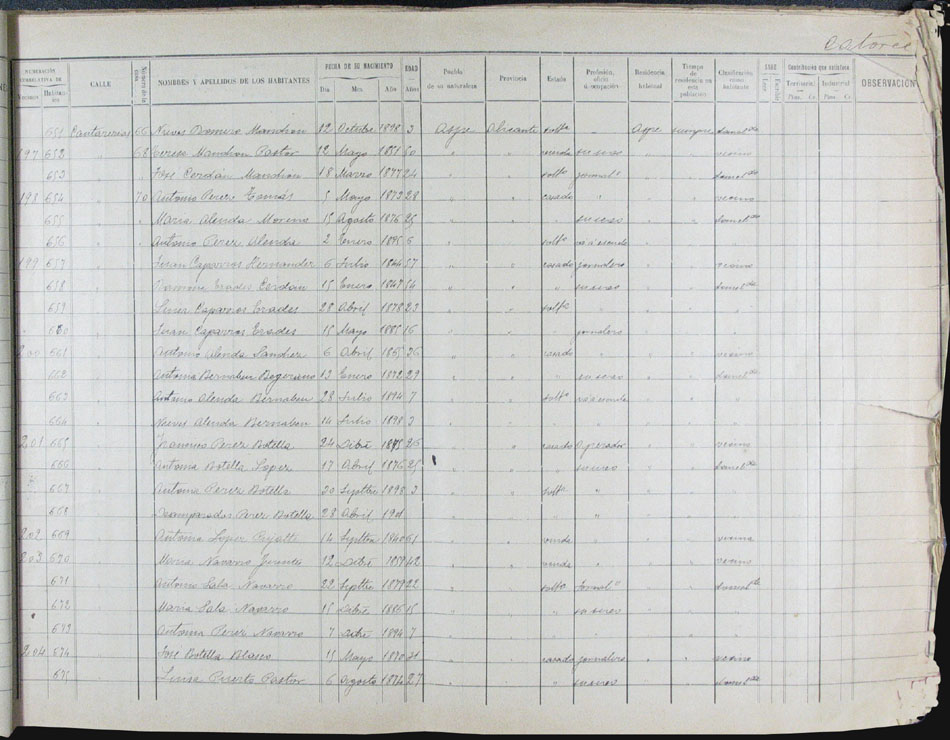 catorce
NUMERACIÓN CORRELATIVA DE
Habitantes
CALLE
NOMBRES Y APELLIDOS DE LOS HABITANTES
FECHA DE SU NACIMIENTO
Día Mes Año
EDAD
Años
Pueblo de su naturaleza
Provincia
Estado
Profesión, oficio ú ocupación
Residencia habitual
Tiempo de residencia en esta población
Clasificación como habitante
Contribución que satisface
Territorial Industrial
Ptas. Cs. Ptas. Cs.
OBSERVACION
651 Cantarerias 66 Nieves Romero Mandión 12 Octubre 1898 3 Aspe Alicante soltª Aspe siempre domcdª
197 652 " 68 Teresa Mandion Pastor 12 Mayo 1851 50 " " viuda sus casas " " vecina
653 " " José Cerdán Mandión 18 Marzo 1877 24 " " soltº jornalº " " domcdº
198 654 " 70 Antonio Perez Tomás 5 Mayo 1873 28 " " casado " " " vecino
655 " " Maria Alenda Moreno 15 Agosto 1876 25 " " " sus casas " " domcdª
656 " " Antonio Perez Alenda 2 Enero 1895 6 " " soltº va á escuela " " "
199 657 " Juan Caparros Hernandez 6 Julio 1844 57 " " casado jornalero " " vecino
658 " Ramona Erades Cerdan 15 Enero 1847 54 " " " sus casas " " domcdª
659 " Luisa Caparros Erades 28 Abril 1878 23 " " soltª " " " "
660 " Juan Caparros Erades 15 Mayo 1885 16 " " " jornalero " " "
200 661 " Antonio Alenda Sanchez 6 Abril 1865 36 " " casado " " " vecino
662 " Antonia Bernabeu 13 Enero 1872 29 " " " sus casas " " domcdª
663 " Antonio Alenda Bernabeu 28 Julio 1894 7 " " soltº va á escuela " " "
664 " Nieves Alenda Bernabeu 14 Julio 1898 3 " " " " " "
201 665 " Francisco Perez Botella 24 Dibre 1875 " " casado " " vecino
666 " Antonia Botella Lopez 17 Abril 1876 25 " " " sus casas " " domcdª
667 " Antonia Perez Botella 20 Septbre 1898 3 " " soltª " " " "
668 " Desamparados Perez Botella 28 Abril 1901 " " " " " " "
202 669 " Antonia Lopez 14 Septbre 1840 61 " " viuda " " " vecina
203 670 " Maria Navarro 12 Dibre 1859 42 " " viuda " " " vecina
671 " Antonio Sala Navarro 22 Septbre 1879 22 " " soltº jornalº " " domcdº
672 " Maria Sala Navarro 15 Dibre 1886 15 " " " sus casas " " "
673 " Antonia Perez Navarro 7 Dibre 1894 7 " " " " " " "
204 674 " José Botella Blasco 15 Mayo 1870 31 " " casado jornalero " " vecino
675 " Luisa Puerto Pastor 6 Agosto 1874 27 " " " sus casas " " domcdª